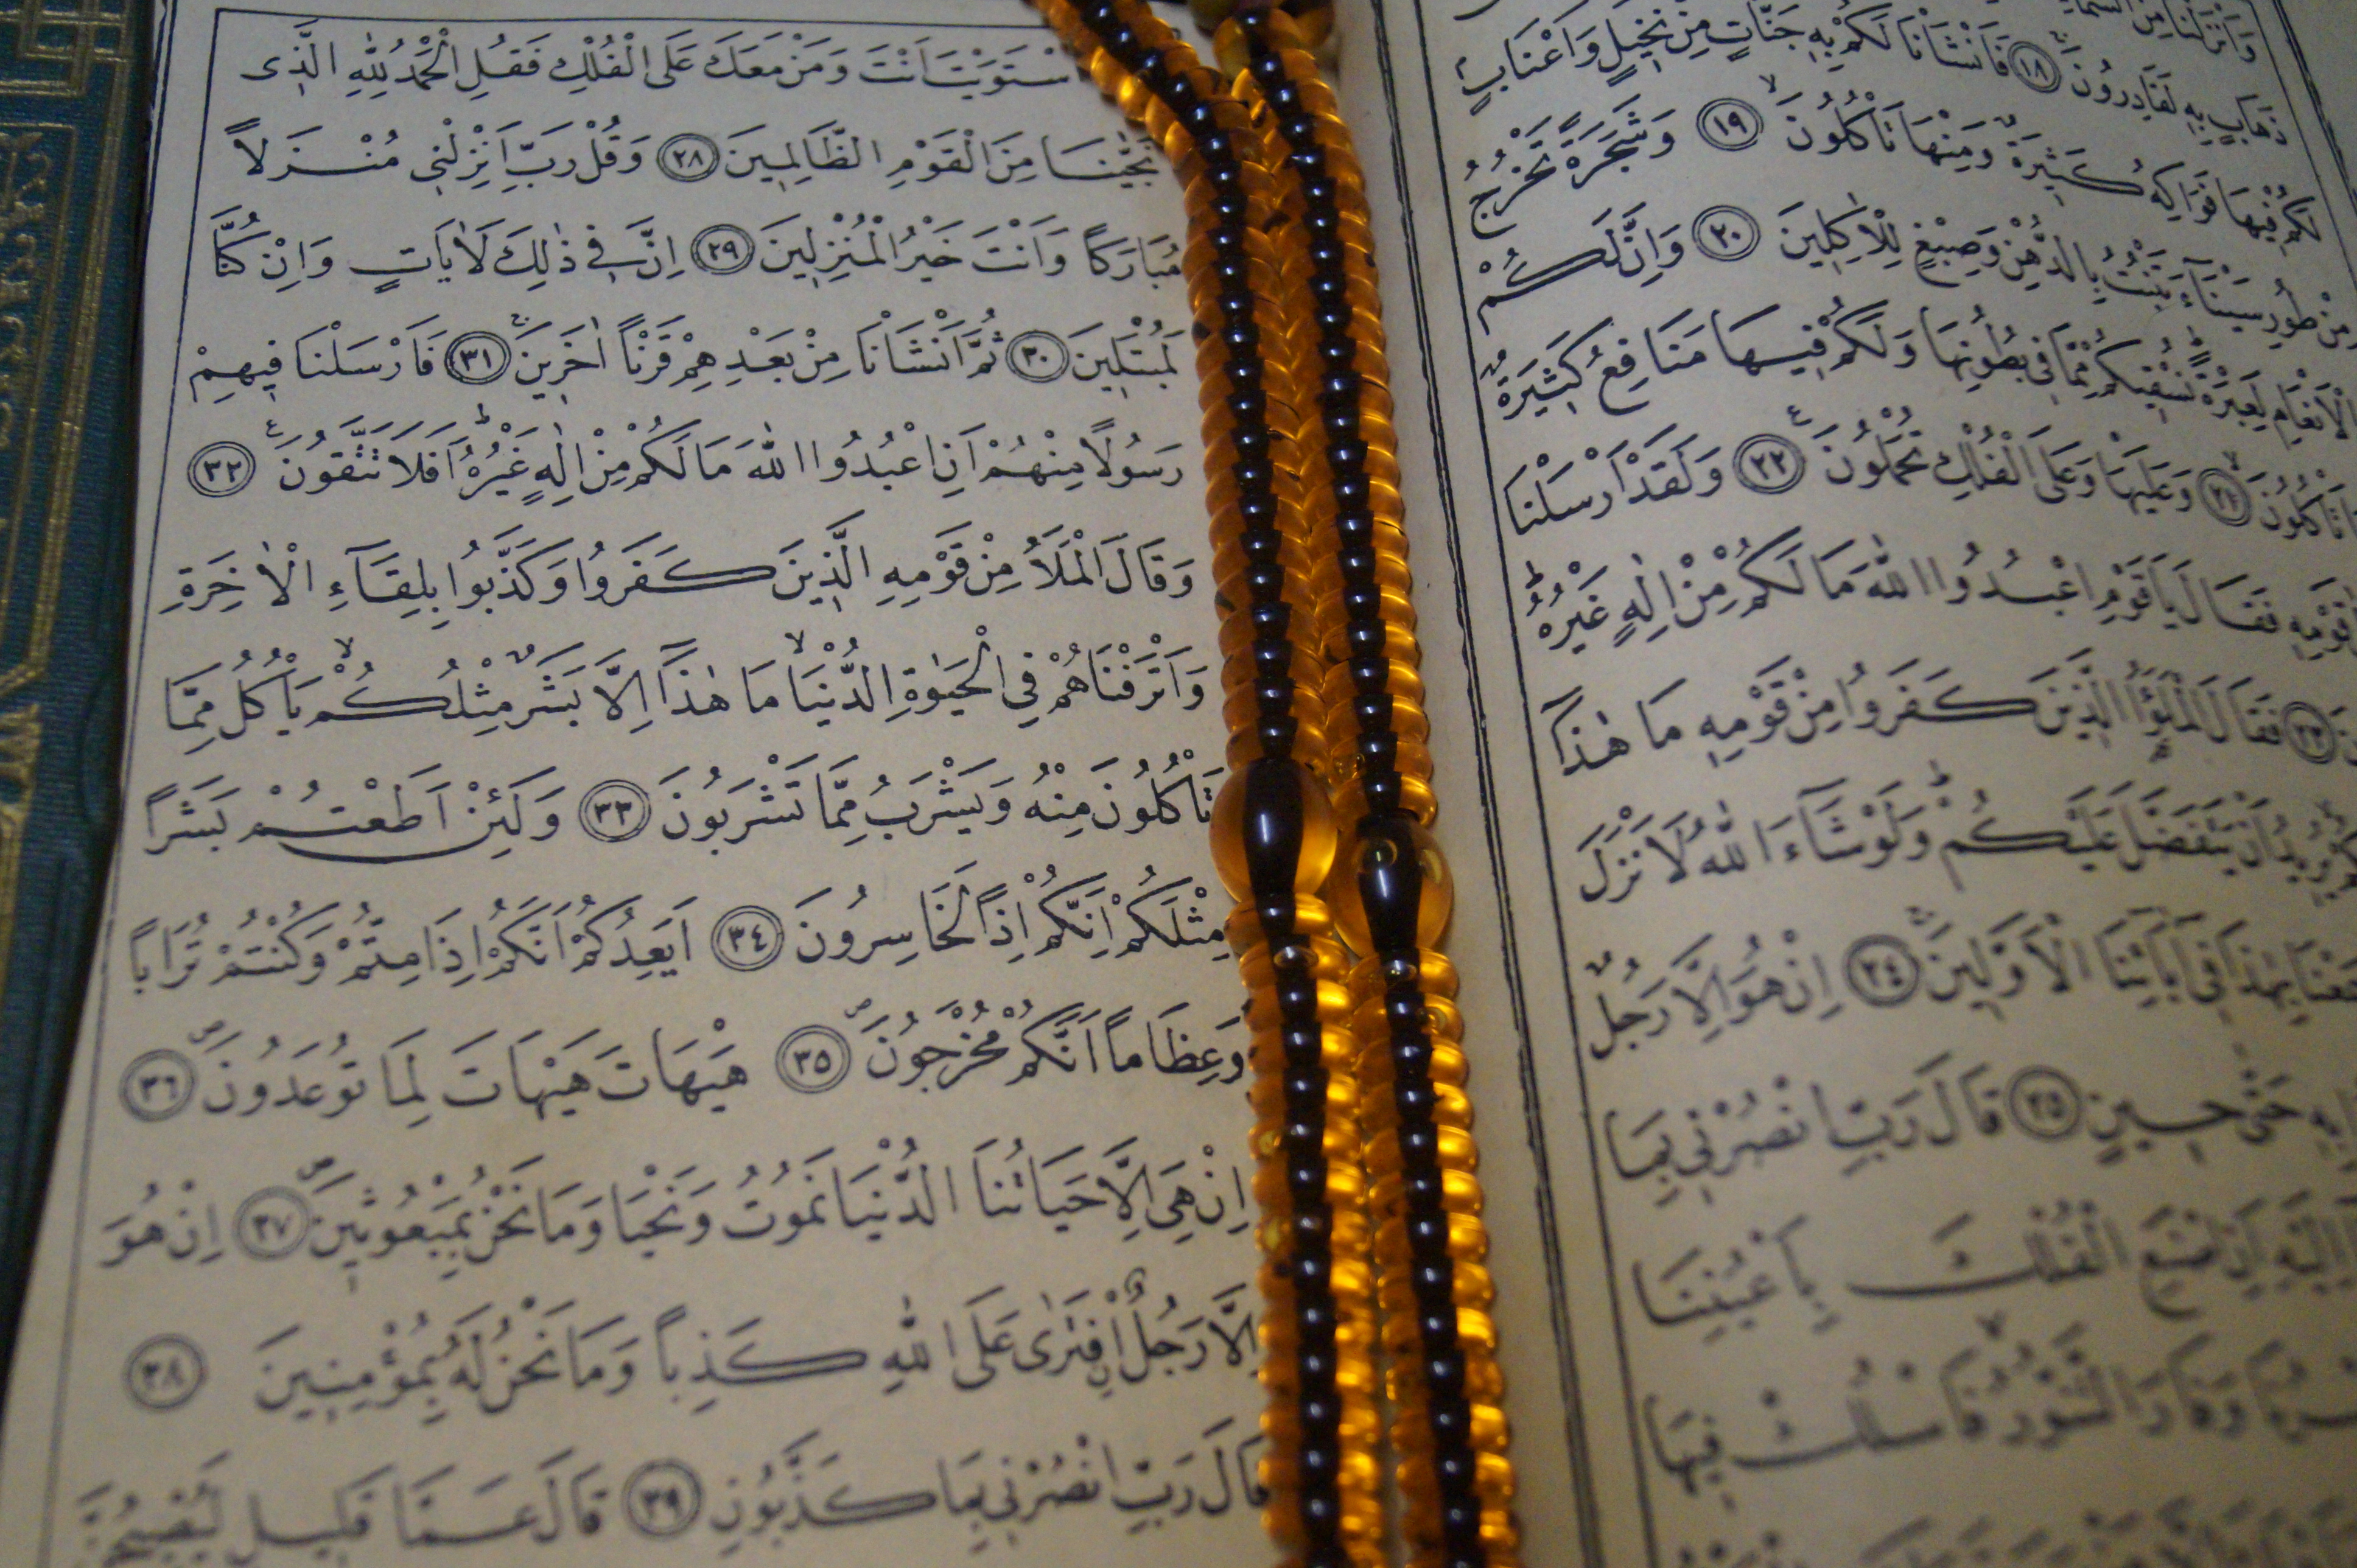 وَاَنْزَلْنَا مِنَ السَّمَاءِ
ذَهَابٍ بِهِ لَقَادِرُونَ ۚ ﴿١٨﴾ فَاَنْشَاْنَا لَكُمْ بِهِ جَنَّاتٍ مِنْ نَخِيلٍ وَاَعْنَابٍۢ
لَكُمْ فِيهَا فَوَاكِهُ كَثِيرَةٌ وَمِنْهَا تَاْكُلُونَ ۙ ﴿١٩﴾ وَشَجَرَةً تَخْرُجُ
مِنْ طُورِ سَيْنَاءَ تَنْبُتُ بِالدُّهْنِ وَصِبْغٍ لِلْاٰكِلِينَ ﴿٢٠﴾ وَاِنَّ لَكُمْ
الْاَنْعَامِ لَعِبْرَةً ۜ نُسْقِيكُمْ مِمَّا فِى بُطُونِهَا وَلَكُمْ فِيهَا مَنَافِعُ كَثِيرَةٌ
تَاْكُلُونَ ۙ ﴿٢١﴾ وَعَلَيْهَا وَعَلَى الْفُلْكِ تُحْمَلُونَ ۟ ﴿٢٢﴾ وَلَقَدْ اَرْسَلْنَا
قَوْمِهِ فَقَالَ يَا قَوْمِ اعْبُدُوا اللّٰهَ مَا لَكُمْ مِنْ اِلٰهٍ غَيْرُهُ ۜ
﴿٢٣﴾ فَقَالَ الْمَلَؤُا الَّذِينَ كَفَرُوا مِنْ قَوْمِهِ مَا هٰذَا
يُرِيدُ اَنْ يَتَفَضَّلَ عَلَيْكُمْ ۜ وَلَوْ شَاءَ اللّٰهُ لَاَنْزَلَ
سَمِعْنَا بِهٰذَا فِى اٰبَائِنَا الْاَوَّلِينَ ۚ ﴿٢٤﴾ اِنْ هُوَ اِلَّا رَجُلٌ
بِهِ حَتّٰى حِينٍ ﴿٢٥﴾ قَالَ رَبِّ انْصُرْنِى بِمَا
اِلَيْهِ اَنِ اصْنَعِ الْفُلْكَ بِاَعْيُنِنَا
وَفَارَ التَّنُّورُ ۙ فَاسْلُكْ فِيهَا
اسْتَوَيْتَ اَنْتَ وَمَنْ مَعَكَ عَلَى الْفُلْكِ فَقُلِ الْحَمْدُ لِلّٰهِ الَّذِى
نَجّٰينَا مِنَ الْقَوْمِ الظَّالِمِينَ ﴿٢٨﴾ وَقُلْ رَبِّ اَنْزِلْنِى مُنْزَلاً
مُبَارَكاً وَاَنْتَ خَيْرُ الْمُنْزِلِينَ ﴿٢٩﴾ اِنَّ فِى ذٰلِكَ لَاٰيَاتٍ وَاِنْ كُنَّا
لَمُبْتَلِينَ ﴿٣٠﴾ ثُمَّ اَنْشَاْنَا مِنْ بَعْدِهِمْ قَرْناً اٰخَرِينَ ۚ ﴿٣١﴾ فَاَرْسَلْنَا فِيهِمْ
رَسُولاً مِنْهُمْ اَنِ اعْبُدُوا اللّٰهَ مَا لَكُمْ مِنْ اِلٰهٍ غَيْرُهُ ۜ اَفَلَا تَتَّقُونَ ۟ ﴿٣٢﴾
وَقَالَ الْمَلَاُ مِنْ قَوْمِهِ الَّذِينَ كَفَرُوا وَكَذَّبُوا بِلِقَاءِ الْاٰخِرَةِ
وَاَتْرَفْنَاهُمْ فِى الْحَيٰوةِ الدُّنْيَا ۙ مَا هٰذَا اِلَّا بَشَرٌ مِثْلُكُمْ ۙ يَاْكُلُ مِمَّا
تَاْكُلُونَ مِنْهُ وَيَشْرَبُ مِمَّا تَشْرَبُونَ ﴿٣٣﴾ وَلَئِنْ اَطَعْتُمْ بَشَراً
مِثْلَكُمْ اِنَّكُمْ اِذاً لَخَاسِرُونَ ﴿٣٤﴾ اَيَعِدُكُمْ اَنَّكُمْ اِذَا مِتُّمْ وَكُنْتُمْ تُرَاباً
وَعِظَاماً اَنَّكُمْ مُخْرَجُونَ ۖ ﴿٣٥﴾ هَيْهَاتَ هَيْهَاتَ لِمَا تُوعَدُونَ ۖ ﴿٣٦﴾
اِنْ هِىَ اِلَّا حَيَاتُنَا الدُّنْيَا نَمُوتُ وَنَحْيَا وَمَا نَحْنُ بِمَبْعُوثِينَ ۖ ﴿٣٧﴾ اِنْ هُوَ
اِلَّا رَجُلٌۨ افْتَرٰى عَلَى اللّٰهِ كَذِباً وَمَا نَحْنُ لَهُ بِمُؤْمِنِينَ ﴿٣٨﴾
قَالَ رَبِّ انْصُرْنِى بِمَا كَذَّبُونِ ﴿٣٩﴾ قَالَ عَمَّا قَلِيلٍ لَيُصْبِحُنَّ